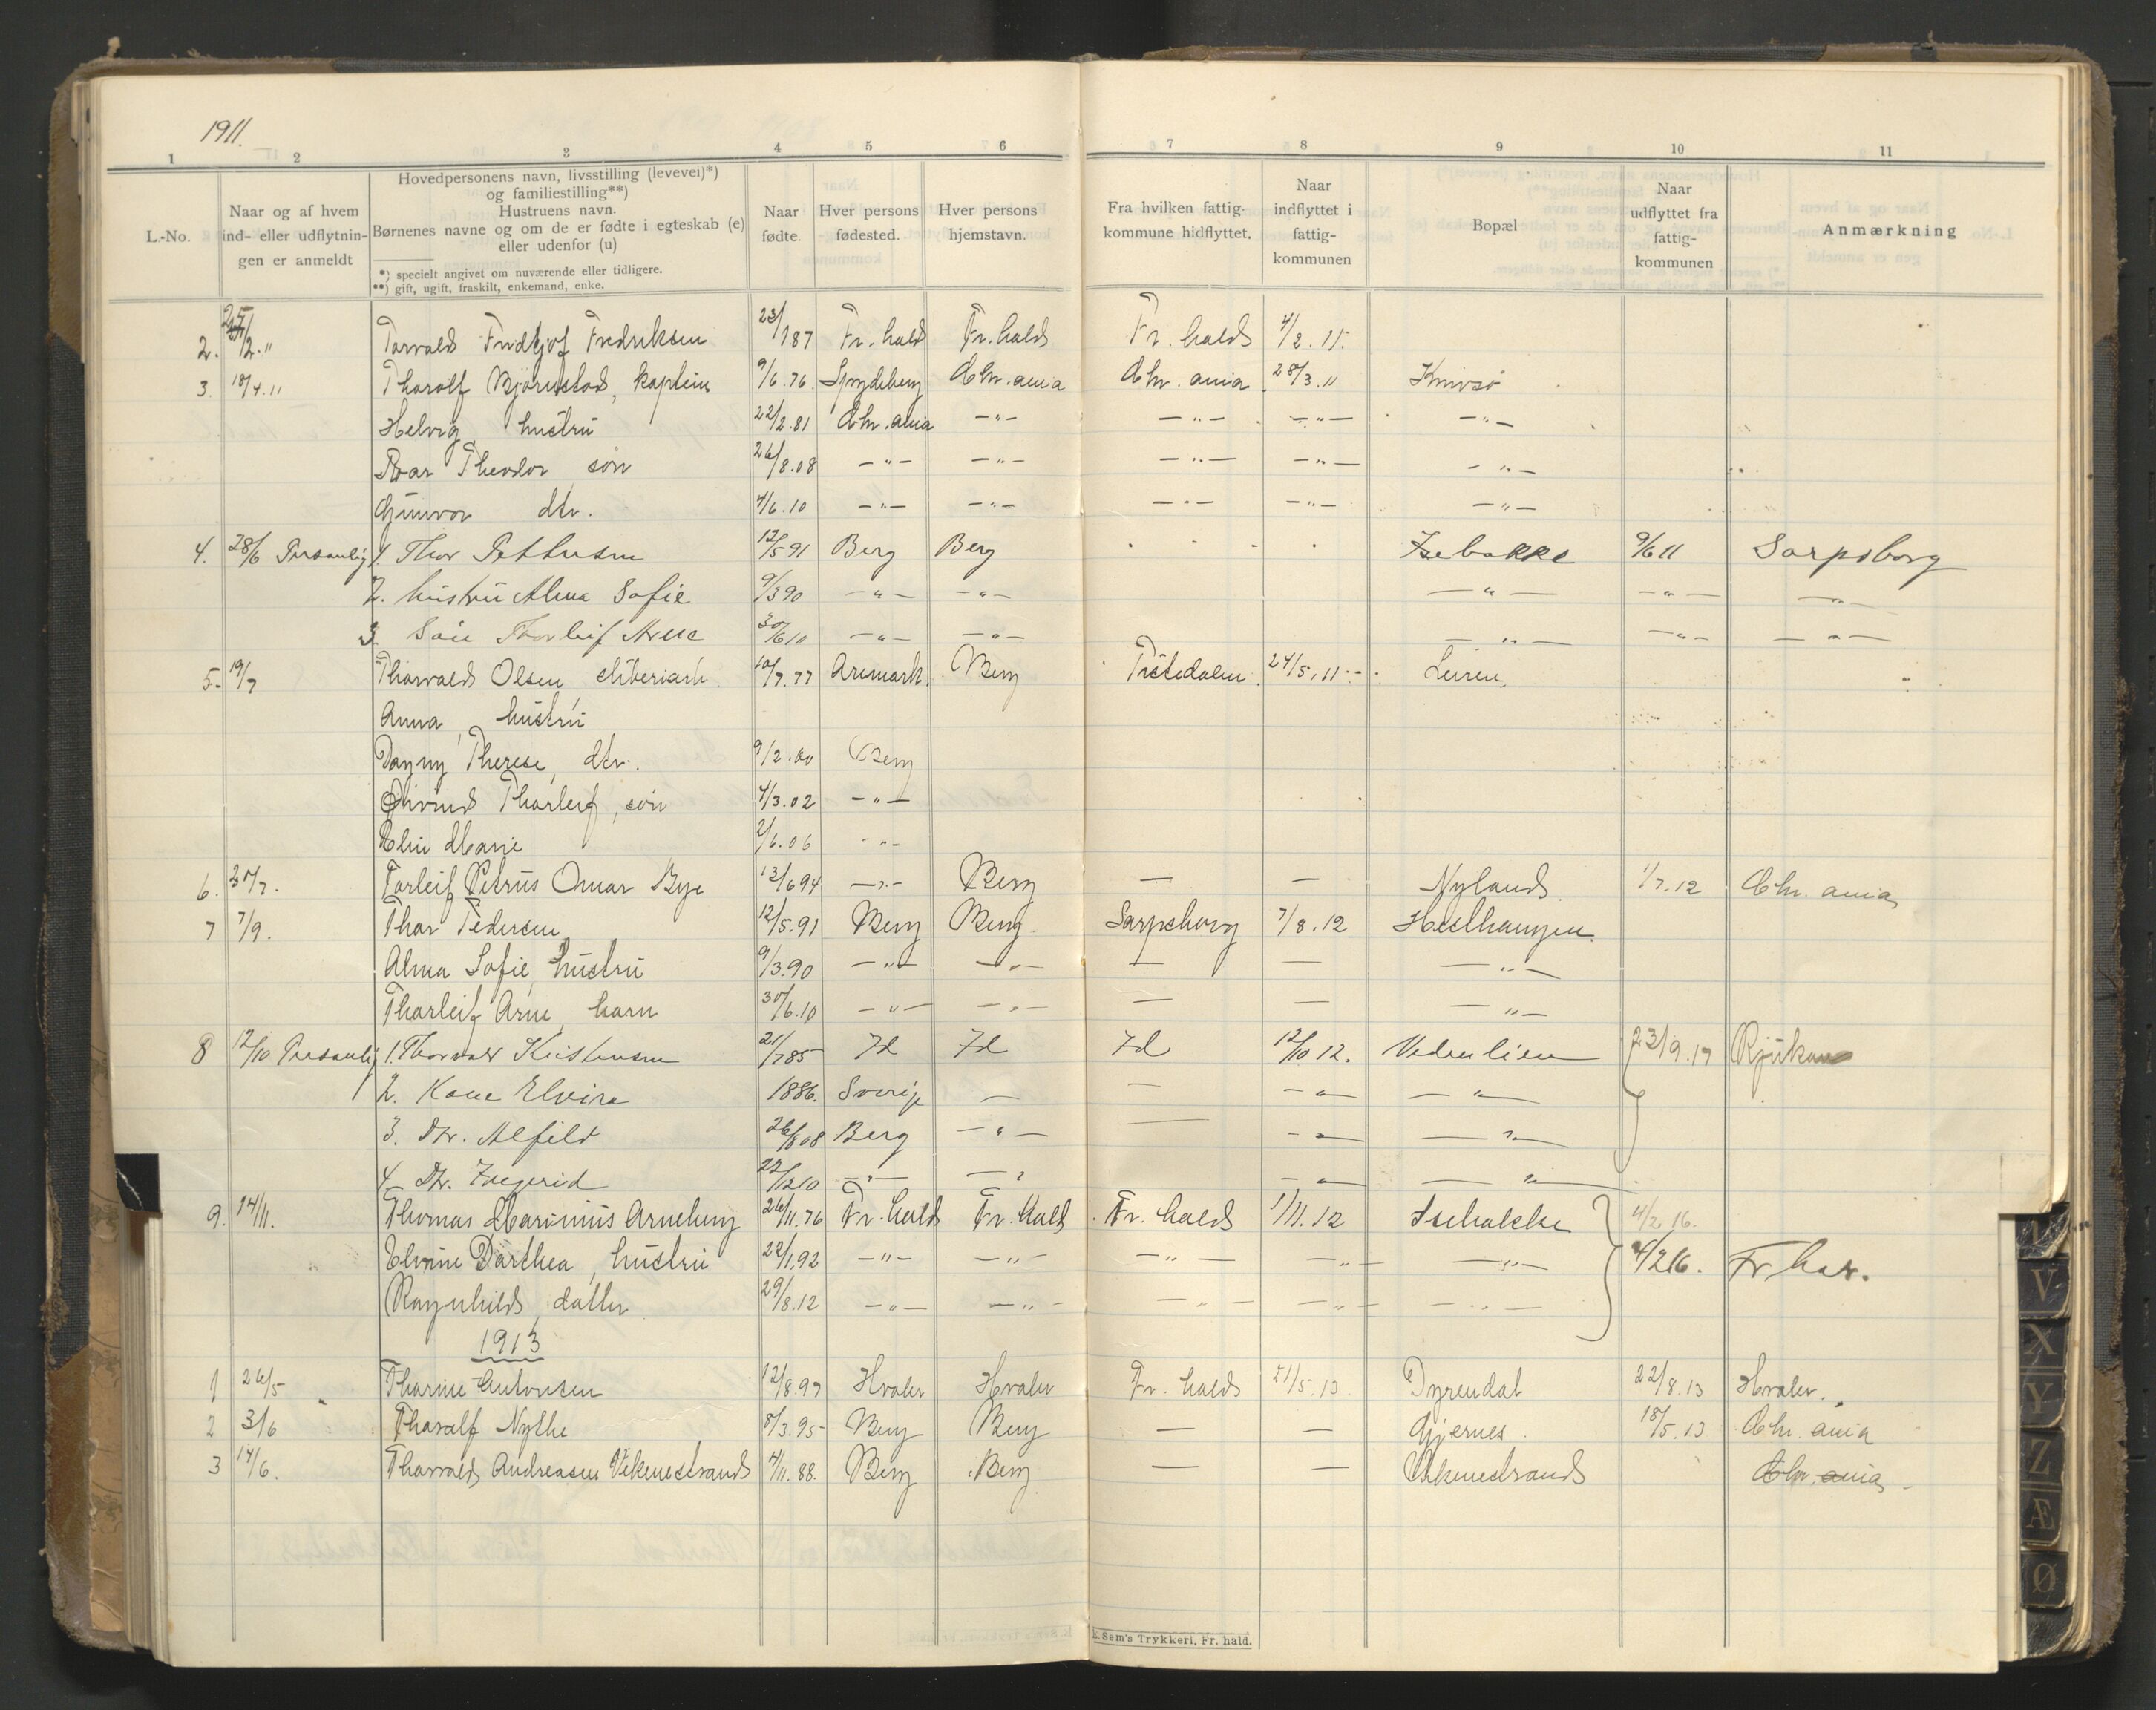 1911.
1 2 3 4 5 6 7 8 9 10 11
L.-No.
Naar og af hvem ind- eller udflytnin- gen er anmeldt
Hovedpersonens navn, livsstilling (levevei)*)
og familiestilling**)
Hustruens navn.
Børnenes navne og om de er fødte i egteskab (e)
eller udenfor (u)
*) specielt angivet om nuværende eller tidligere.
**) gift, ugift, fraskilt, enkemand, enke.
Naar fødte.
Hver persons fødested.
Hver persons hjemstavn.
Fra hvilken fattig- kommune hidflyttet.
Naar indflyttet i fattig- kommunen
Bopæl
Naar udflyttet fra fattig- kommunen
Anmærkning
2. Torvald Fridtjof Fredriksen 23/1 87 Fr. hald Fr. hald Fr. hald 4/2. 11.
3. 18/4. 11 Tharalf Bjørnstad, kaptein 9/6. 76. Spydeberg Chr. ania Chr. ania 28/3. 11 Knivsø
Helvig hustru 22/2. 81 Chr. ania -"- -"- -"- -"-
Roar Theodor søn 26/8. 08 -"- -"- -"- -"- -"-
Gunvor dtr. 4/6. 10 -"- -"- -"- -"- -"-
4. 28/6 Personlig 1. Thor Pettersen 12/5 91 Berg Berg Isebakke 9/6 11 Sarpsborg
2. hustru Alma Sofie 9/3 90 -"- -"- -"- -"- -"-
3. Søn Thorleif Arne 30/6 10 -"- -"- -"- -"- -"-
5. 19/7 Thorvald Olsen 10/7. 77 Aremark Berg Tistedalen 24/5. 11 Leiren
Anna, hustru
Dagny Therese, dtr. 9/2. 00 Berg
Øivind Thorleif, søn 4/3. 02 -"-
Elin Marie 2/6. 06 -"-
6. 20/7. Torleif Petrus Omar Bye 13/6 94 -"- Berg — — Nyland 1/7. 12 Chr. ania
7 7/9. Thor Pedersen 12/5. 91 Berg Berg Sarpsborg 7/8. 12 Heslhaugen
Alma Sofie, hustru 9/3. 90 -"- -"- — — -"-
Thorleif Arne, barn 30/6. 10 -"- -"- — — -"-
8 12/10 Personlig 1. Thorvald Kristensen 21/7 85 Id Id Id 12/10 12. Vedenlien 23/9. 17 Rjukan
2. Kone Elvira 1886. Sverige — — -"- -"-
3. Dtr. Alfild 26/8 08 Berg -"- — -"- -"-
4. Dtr. Ingerid 22/12 10 -"- -"- -"- -"-
9. 14/11. Thomas Marinius Arneberg 26/11. 76 Fr. hald Fr. hald Fr. hald 1/11. 12 Isebakke 4/2 16.
Elvine Dorthea, hustru 22/1. 92 -"- -"- -"- -"- -"- 4/2 16. Fr hald.
Ragnhild, datter 29/8. 12 -"- -"- -"- -"- -"-
1913
1 26/5 Thorine Antonsen 12/8. 97 Hvaler Hvaler Fr. hald 21/5. 13. Dyrendal 22/8. 13 Hvaler.
2 3/6 Tharalf Nythe 8/3. 95 Berg Berg — — Gjernes 18/5. 13 Chr. ania
3 14/6. Thorvald Andreasen Vikenestrand 4/11. 88. Berg Berg — — Vikenestrand Chr. ania
E. Sem's Trykkeri, Fr. hald.
V
X
Y
Z
Æ
Ø